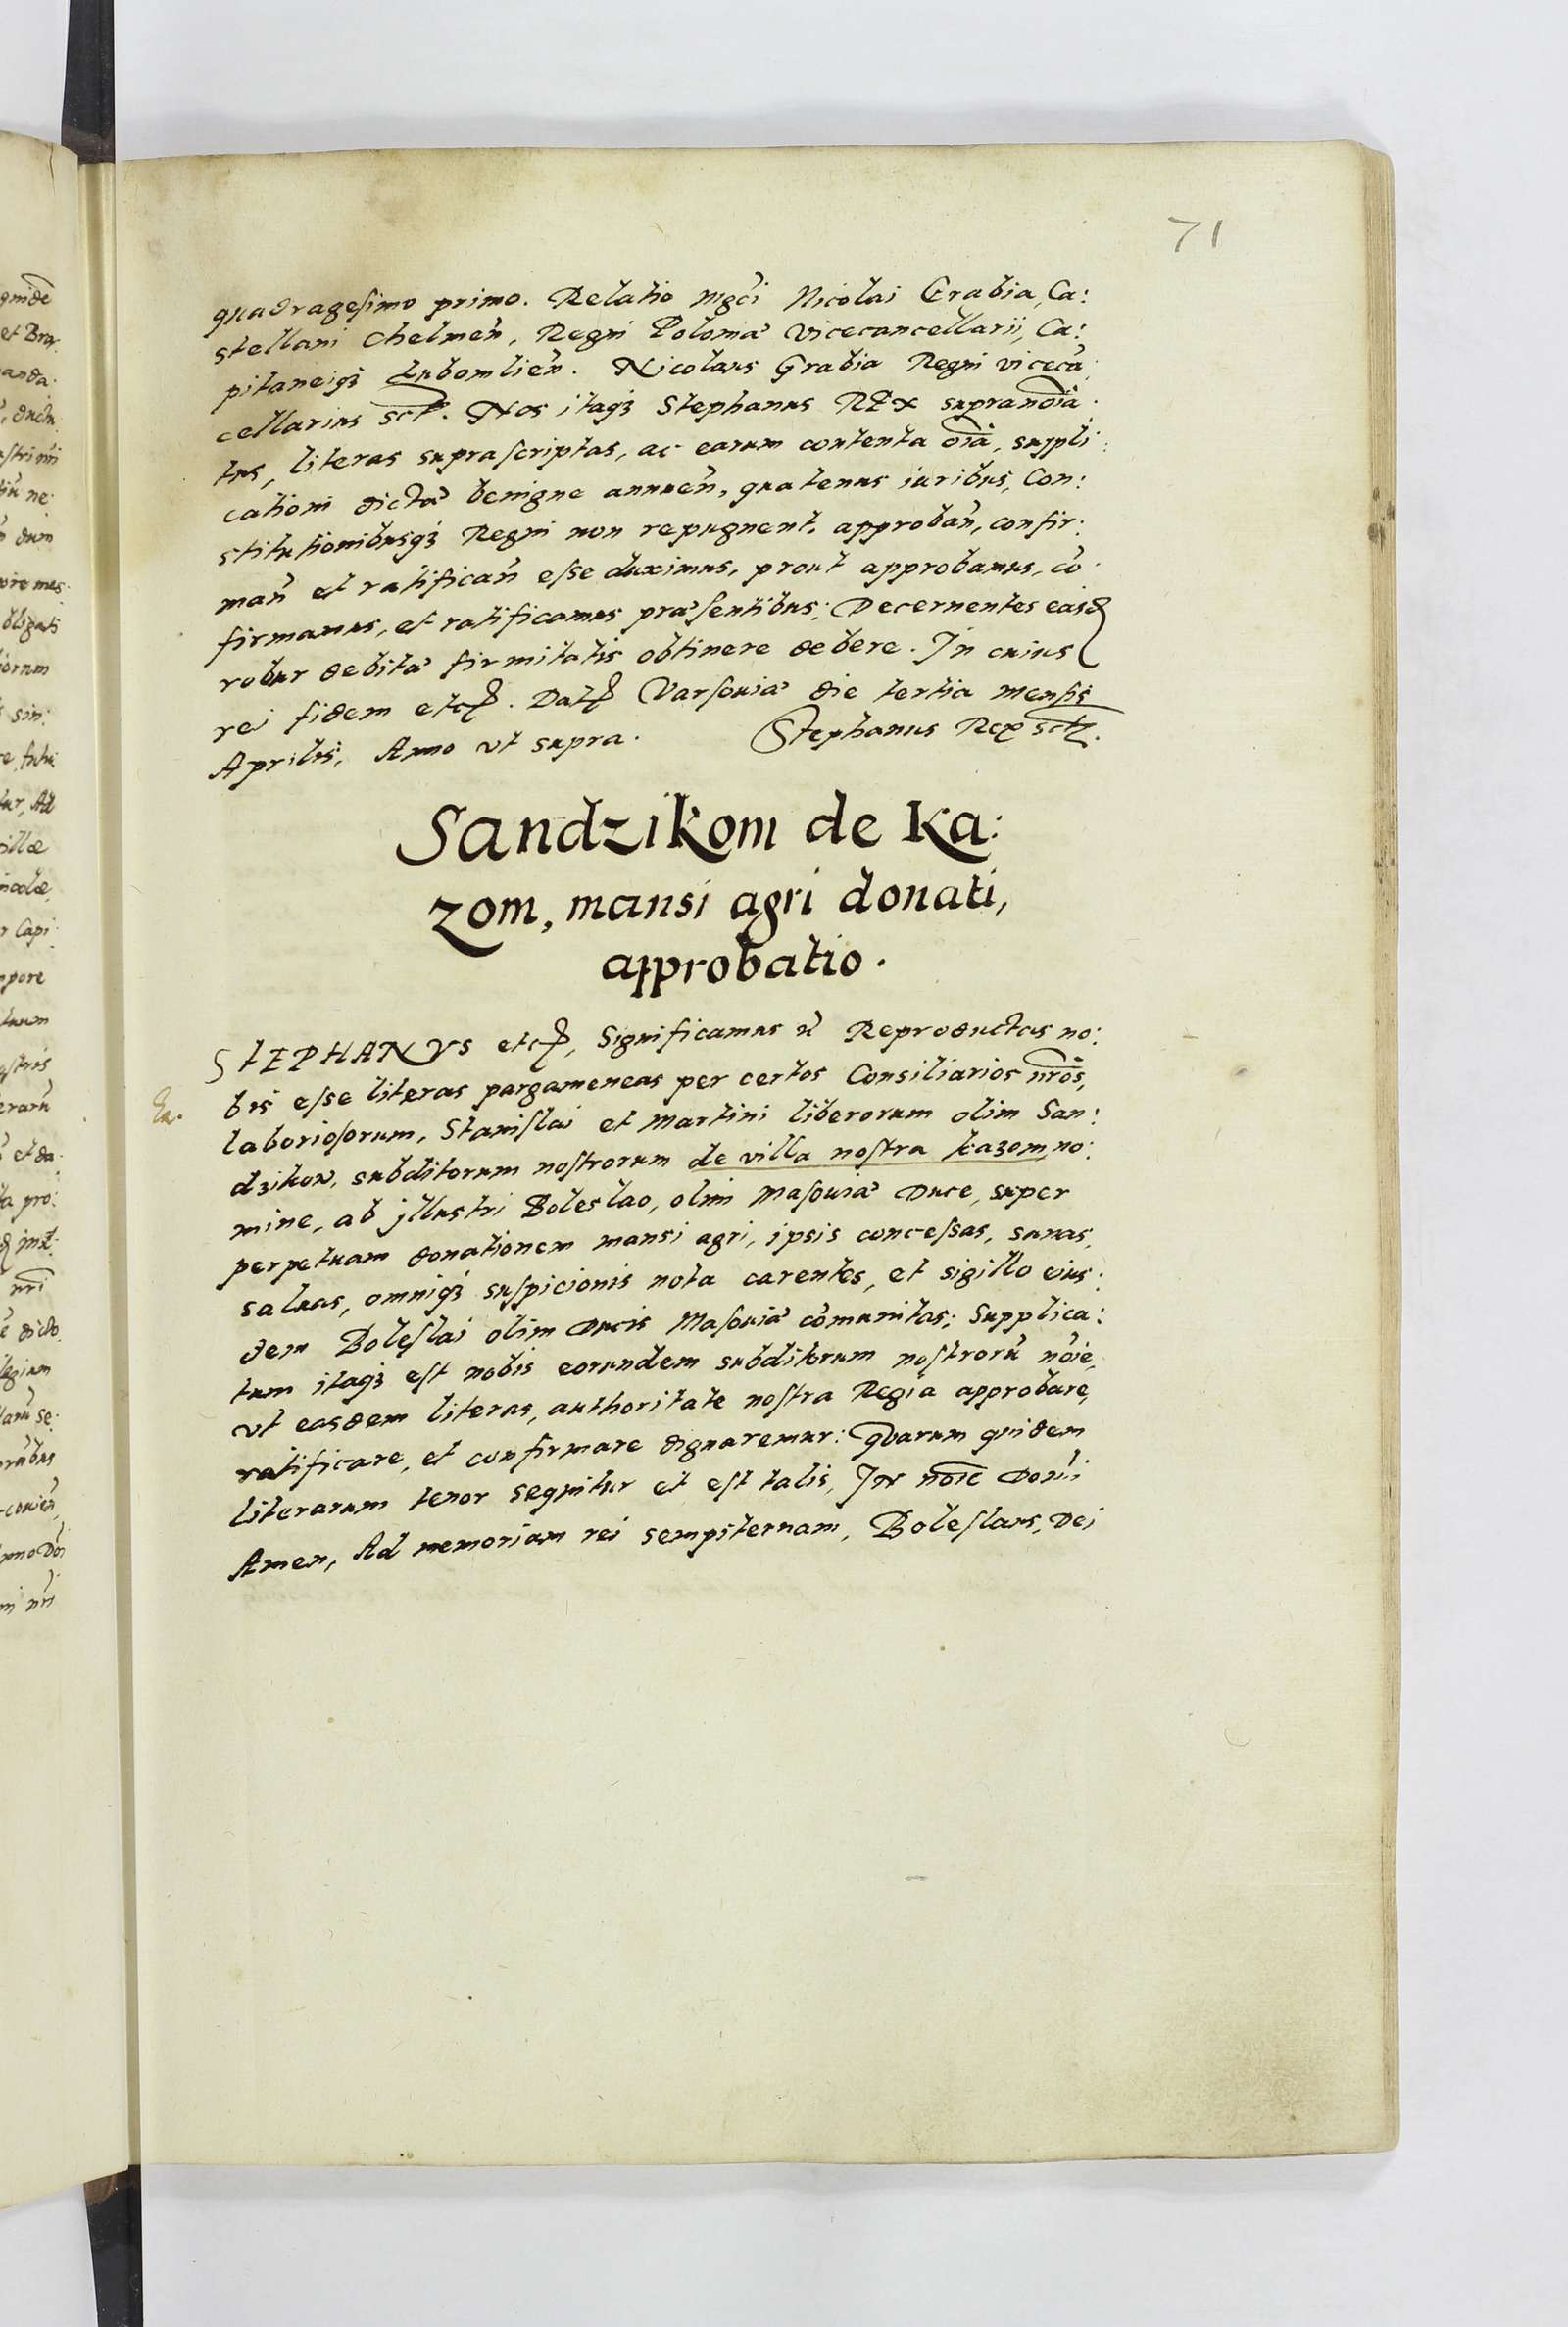 71
quadragesimo primo. Relatio mgci Nicolai Grabia, Ca:
stellani Chelmen̄, Regni Poloniæ Vicecancellarii, Ca:
pitaneiq3 Lubomlien̄. Nicolaus Grabia Regni vicecā:
cellarius sct. Nos itaq3 Stephanus REx supranoīa:
tus, literas suprascriptas, ac earum contenta oīa, suppli:
cationi dictæ benigne annuen̄, quatenus iuribus, Con:
stitutionibusq3 Regni non repugnent, approban̄, confir:
man̄ et ratifican̄ esse duximus, prout approbamus, cō:
firmamus, et ratificamus præsentibus; Decernentes easd
robur debitæ firmitatis obtinere debere. In cuius
rei fidem etc. Dat Varsouiæ die tertia mensis
Aprilis, Anno vt supra. Stephanus Rex sct.
Sandzikom de Ka:
zom, mansi agri donati,
approbatio.
STEPHANVS etc, Significamus ꝛ Reproductas no:
bis esse literas pargameneas per certos Consiliarios nr̄os,
laboriosorum, Stanislai et Martini liberorum olim San:
dzikow, subditorum nostrorum de villa nostra Kazom no:
mine, ab jllustri Boleslao, olim Masouiæ Duce, super
perpetuam donationem mansi agri, ipsis concessas, sanas,
saluas, omniq3 suspicionis nota carentes, et sigillo eius:
dem Boleslai olim Ducis Masouiæ cōmunitas; Supplica:
tum itaq3 est nobis eorundem subditorum nostrorū nōie,
vt easdem literas, authoritate nostra Regia approbare,
ratificare, et confirmare dignaremur: Quarum quidem
literarum tenor sequitur et est talis, In nōie Domi
Amen, Ad memoriam rei sempiternam, Boleslaus, Dei